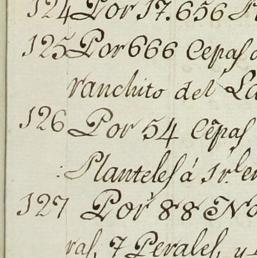 124 Por 17.656
125 Por 666 Cepas
ranchito del
126 Por 54 Cepas
Planteles á 1 rl. en
127 Por 88 No
ras, 7 Perales, y